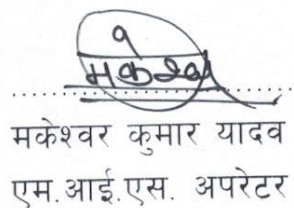 मकेश्वर
मकेश्वर कुमार यादव
एम.आई.एस. अपरेटर